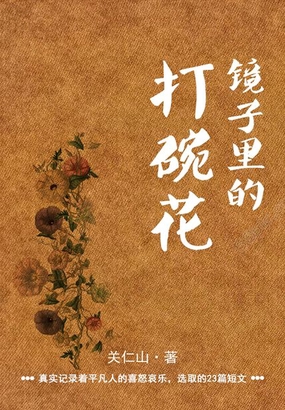 镜子里的
打碗花
关仁山·著
●●● 真实记录着平凡人的喜怒哀乐，选取的23篇短文 ●●●